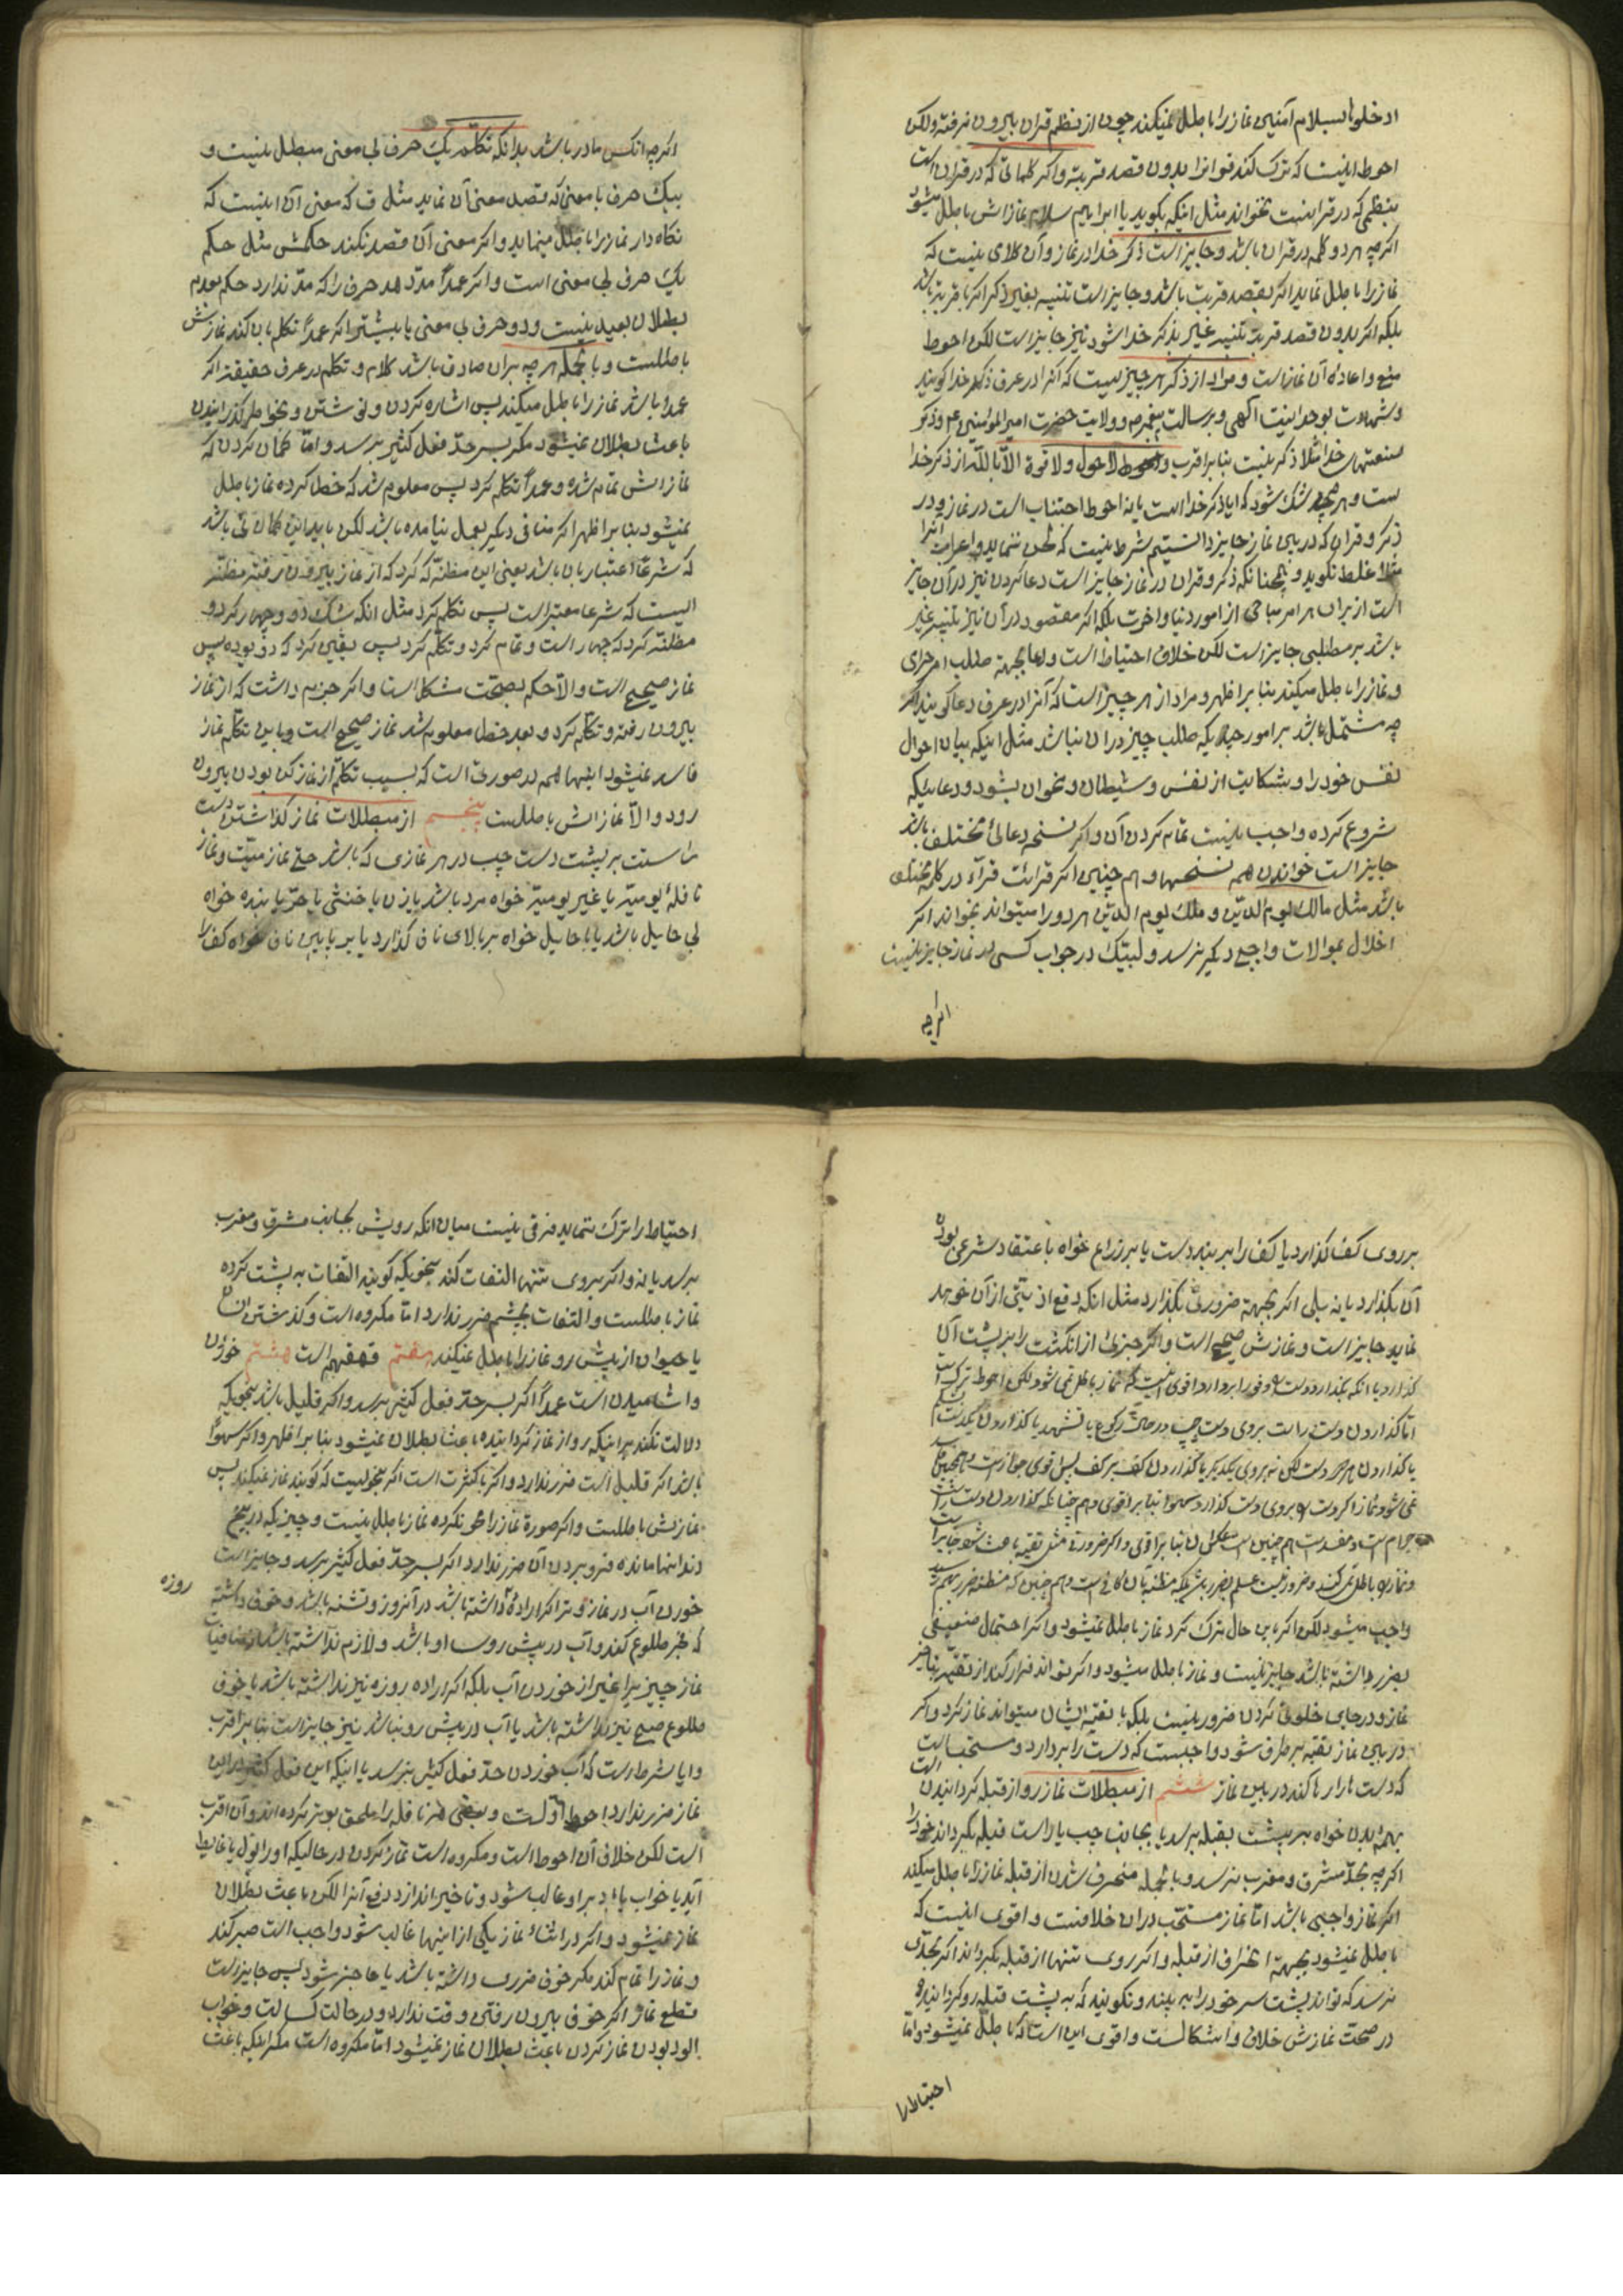 ادخلوها بسلام آمنین نماز را باطل نمیکند چون از نظم قران بیرون نرفته ولکن
احوط اینست که ترک کند قرانرا بدون قصد قربت و اکر کلماتی که در قران است
بنظمی که در قرانست نخواند مثل اینکه بکوید یا ابراهیم سلام نمازش باطل میشود
اکرچه هر دو کلمه در قران باشد و جایز است ذکر خدا در نماز و آن کلامی نیست که
نماز را باطل نماید اکر بقصد قربت باشد و جایز است تنبیه بغیر ذکر اکر با قربت باشد
بلکه اکر بدون قصد قربت تنبیه غیر بذکر خدا شود نیز جایز است لکن احوط
منع و اعاده آن نماز است و مراد از ذکر هر چیز یست که آنرا در عرف ذکر خدا کویند
و شهادت بوحدانیت الهی و برسالت پیغمبر ص و ولایت حضرت امیرالمؤمنین ع م و ذکر
صفتهای خدا مثلا ذکر نیست بنا بر اقرب و لاحول ولا قوة الا بالله از ذکر خدا
ست و هر چه شک شود که ایا ذکر خدا است یا نه احوط اجتناب است در نماز و در
ذکر و قران که در بین نماز جایز دانستیم شرط نیست که لحن ننماید و اعراب آنرا
مثلا غلط نکوید و همچنانکه ذکر و قران در نماز جایز است دعا کردن نیز در آن جایز
است از برای هر امر مباحی از امور دنیا و اخرت بلکه اکر مقصود در آن نیز تنبیه غیر
باشد بر مطلبی جایز است لکن خلاف احتیاط است و دعا بجهة طلب امر حرامی
نماز را باطل میکند بنا بر اظهر و مراد از هر چیز است که آنرا در عرف دعا کویند اکر
چه مشتمل باشد بر امور چندیکه طلب چیز دران نباشد مثل اینکه بیان احوال
نفس خود را و شکایت از نفس و شیطان و نحو ان بشود و دعاییکه
شروع کرده واجب نیست تمام کردن آن و اکر نسخه دعائی مختلف باشد
جایز است خواندن همه نسخها و هم چنین اکر قرائت قرآء در کلمه مختلف
باشد مثل مالک یوم الدین و ملک یوم الدین هر دو را میتواند بخواند اکر
اخلال بموالات واجبی دیکر نرسد و لبیک در جواب کسی در نماز جایز نیست
اکرچه
اکرچه انکس مادر باشد بدانکه تکلم بیک حرف بی معنی مبطل نیست و
بیک حرف با معنی که قصد معنی آن نماید مثل ق که معنی آن اینست که
نکاه دار نماز را باطل مینماید و اکر معنی آن قصد نکند حکمش مثل حکم
یک حرف بی معنی است و اکر عمداً مدّ دهد حرف را که مدّ ندارد حکم بعدم
بطلان بعید نیست و دو حرف بی معنی یا بیشتر اکر عمداً تکلم بان کند نمازش
باطلست و بالجمله هر چه بران صادق باشد کلام و تکلم در عرف حقیقة اکر
عمدا باشد نماز را باطل میکند پس اشاره کردن و نوشتن و بخواطر کذرانیدن
باعث بطلان نمیشود مکر بسر حدّ فعل کثیر برسد و امّا کمان کردن که
نمازش تمام شده و عمداً تکلم کرد پس معلوم شد که خطا کرده نماز باطل
نمیشود بنا بر اظهر اکر منافی دیکر بعمل نیامده باشد لکن باید این کمان باشد
که شرعاً اعتبار بان باشد یعنی این مظنّه که کرد که از نماز بیرون رفته مظنّه
ایست که شرعا معتبر است پس تکلم کرد مثل انکه شک دو و چهار کرد و
مظنّه کرد که چهار است و تمام کرد و تکلم کرد پس یقین کرد که دو بوده پس
نماز صحیح است والّا حکم بصحّت مشکل است و اکر جزم داشت که از نماز
بیرون رفته و تکلم کرد و بعد خطا معلوم شد نماز صحیح است و باین تکلم نماز
فاسد نمیشود اینها همه در صورتی است که بسبب تکلم از نماز کن بودن بیرون
رود والّا نمازش باطلست پنجم از مبطلات نماز کذاشتن دست
راست بر پشت دست چپ در هر نمازی که باشد حتی نماز میّت و نماز
نافله یومیّه یا غیر یومیّه خواه مرد باشد یا زن یا خنثی یا حرّ یا بنده خواه
بی حایل باشد یا با حایل خواه بر بالای ناف کذارد یا بر پایین ناف خواه کف را
بر روی کف کذارد یا کف را بر بند دست یا بر ذراع خواه باعتقاد شرعی بودن
آن بکذارد یا نه بلی اکر بجهة ضرورتی بکذارد مثل انکه دفع اذیتی از آن خود
نماید جایز است و نمازش صحیح است و اکر جزئی از انکشت را بر پشت آن
کذارد یا انکه بکذارد دست و فوراً بردارد اقوی اینست که نماز باطل نمی شود لکن احوط ترکست
امّا کذاردن دست راست بروی دست چپ در حالت رکوع یا تشهد یا کذاردن
یا کذاردن هر دو دست لکن نه بروی یکدیکر یا کذاردن کف بر کف پس اقوی جواز است و همچنین باطل
نمی شود نماز اکر دست بروی دست کذارد سهوا بنا بر اقوی و هم چنانکه کذاردن دست راست
حرام است و مفسد است هم چنین است عکس ان بنا بر اقوی و اکر ضرورة مثل تقیه باعث شود جایز است
و نماز باطل نمی کند و ضرور نیست علم بضرر باشد بلکه مظنّه بان کافی است و هم چنین که مظنّه ضرر بهم رسد
واجب میشود لکن اکر باین حال ترک کرد نماز باطل نمیشود و اکر احتمال ضعیفی
بضرر داشته باشد جایز نیست و نماز باطل میشود و اکر تواند فرار کند از تقیّه
نماز و در جای خلوتی کردن ضرور نیست بلکه با تقیّه ایشان میتواند نماز کرد و اکر
در بین نماز تقیّه برطرف شود واجبست که دست را بردارد و مستحب است
که دست را رها کند در بین نماز ششم از مبطلات نماز رو از قبله کردانیدن است
بهمه بدن خواه ببر پشت بقبله برسد یا بجانب چپ یا راست قبله بکرداند خود را
اکرچه بحدّ مشرق و مغرب نرسد و بالجمله منحرف شدن از قبله نماز را باطل میکند
اکر نماز واجبی باشد امّا نماز مستحب دران خلافست و اقوی اینست که
باطل نمیشود بجهة انحراف از قبله و اکر روی تنها از قبله بکرداند اکر بحدّی
نرسد که تواند پشت سر خود را به بیند و نکویند که به پشت قبله رو کردانیده
در صحّت نمازش خلاف و اشکالست و اقوی این است که باطل نمیشود و امّا
احتیاط را
احتیاط را ترک ننماید فرقی نیست میان انکه رویش بجانب مشرق و مغرب
برسد یا نه و اکر بروی تنها التفات کند بنحویکه کویند التفات به پشت کرده
نماز باطلست و التفات بچشم ضرر ندارد امّا مکروه است و کذشتن انسان
یا حیوان از پیش رو نماز را باطل نمیکند هفتم قهقهه است هشتم خوردن
و اشامیدن است عمداً اکر بسر حدّ فعل کثیر برسد و اکر قلیل باشد بنحویکه
دلالت نکند براینکه رو از نماز کردانیده باعث بطلان نمیشود بنا بر اظهر و اکر سهواً
باشد اکر قلیل است ضرر ندارد و اکر با کثرت است اکر بنحویست که کویند نماز نمیکند پس
نمازش باطلست و اکر صورة نماز را محو نکرده نماز باطل نیست و چیزیکه در بیخ
دندانها مانده فرو بردن آن ضرر ندارد اکر بسر حدّ فعل کثیر نرسد و جایز است
خوردن آب در نماز وتر اکر ارادهٔ داشته باشد در آنروز و تشنه باشد و خوف داشته
روزه
که فجر طلوع کند و آب در پیش روی او باشد و لازم نداشته باشد از منافیات
نماز چیزیرا غیر از خوردن آب بلکه اکر اراده روزه نیز نداشته باشد یا خوف
طلوع صبح نیز نداشته باشد یا آب در پیش رو نباشد نیز جایز است بنا بر اقرب
و ایا شرط است که آب خوردن حدّ فعل کثیر نرسد یا اینکه این فعل کثیر در این
نماز ضرر ندارد احوط اولست و بعضی هر نافله را ملحق بوتر کرده اند و آن اقرب
است لکن خلاف آن احوط است و مکروه است نماز کردن در حالیکه او را بول یا غایط
آید یا خواب یا باد بر او غالب شود و تاخیر اندازد دفع آنرا لکن باعث بطلان
نماز نمیشود و اکر در اثناء نماز یکی از اینها غالب شود واجب است صبر کند
و نماز را تمام کند مکر خوف ضرری داشته باشد یا عاجز شود پس جایز است
قطع نماز اکر خوف بیرون رفتن وقت ندارد و در حالت کسالت و خواب
الود بودن نماز کردن باعث بطلان نماز نمیشود امّا مکروه است مکر اینکه باعث